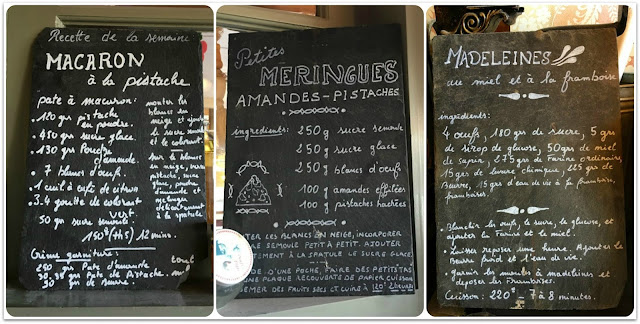 Recette de la semaine
MACARON
à la pistache
pate à macaron:
120 grs pistache
en poudre
450 grs sucre glace
130 grs Poudre
d'amande.
7 blancs d'oeuf.
1 cuil à café de citron
3.4 goutte de colorant
vert.
50 grs sucre semoule
150° (th5) 12 mins.
monter les
blancs en
neige et ajouter
le sucre semoule
et le colorant
sur la blancs
en neige, verser
pistache, sucre
glace, poudre
d'amande et
mélanger
délicatement
à la spatule
Crème garniture:
250 grs Pate d'amande
30.35 grs Pate de Pistache.
30 grs de Beurre.
Petites
MERINGUES
AMANDES-PISTACHES
ingredients:
250 g sucre semoule
250 g sucre glace
250 g blancs d'oeuf
100 g amandes effilées
100 g pistaches hachées
LES BLANCS EN NEIGE, INCORPORER
SEMOULE PETIT À PETIT. AJOUTER
À LA SPATULE LE SUCRE GLACE.
D'UNE POCHE, FAIRE DES PETITS TAS
UNE PLAQUE RECOUVERTE DE PAPIER CUISSON
DES FRUITS SECS ET CUIRE À 120° 2 heures
MADELEINES
au miel et à la framboise
ingrédients:
4 œufs, 180 grs de sucre, 5 grs
de sirop de glucose, 50 grs de miel
de sapin, 275 grs de farine ordinaire,
15 grs de levure chimique, 225 grs de
Beurre, 15 grs d'eau de vie à la framboise,
framboises.
Blanchir les œufs, le sucre, le glucose, et
ajouter la farine et le miel.
Laisser reposer une heure. Ajouter le
Beurre froid et l'eau de vie.
Garnir les moules à madeleines et
deposer les framboises.
Cuisson: 220° - 7 à 8 minutes.